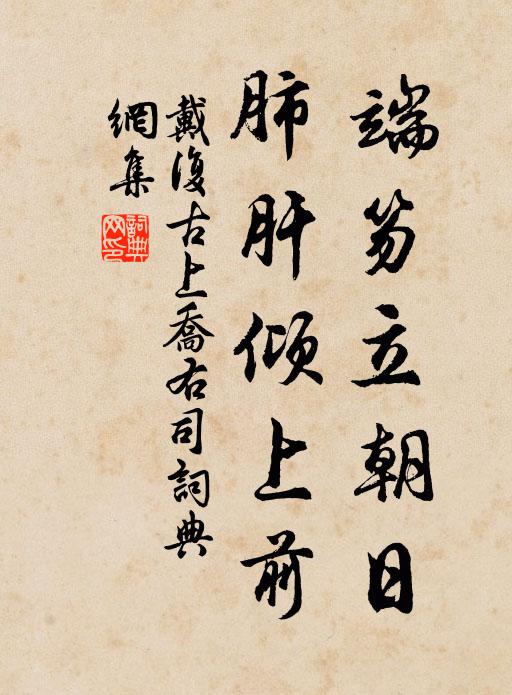 端笏立朝日
肺肝傾上前
戴復古上喬右司詞典
網集
詞典
网印